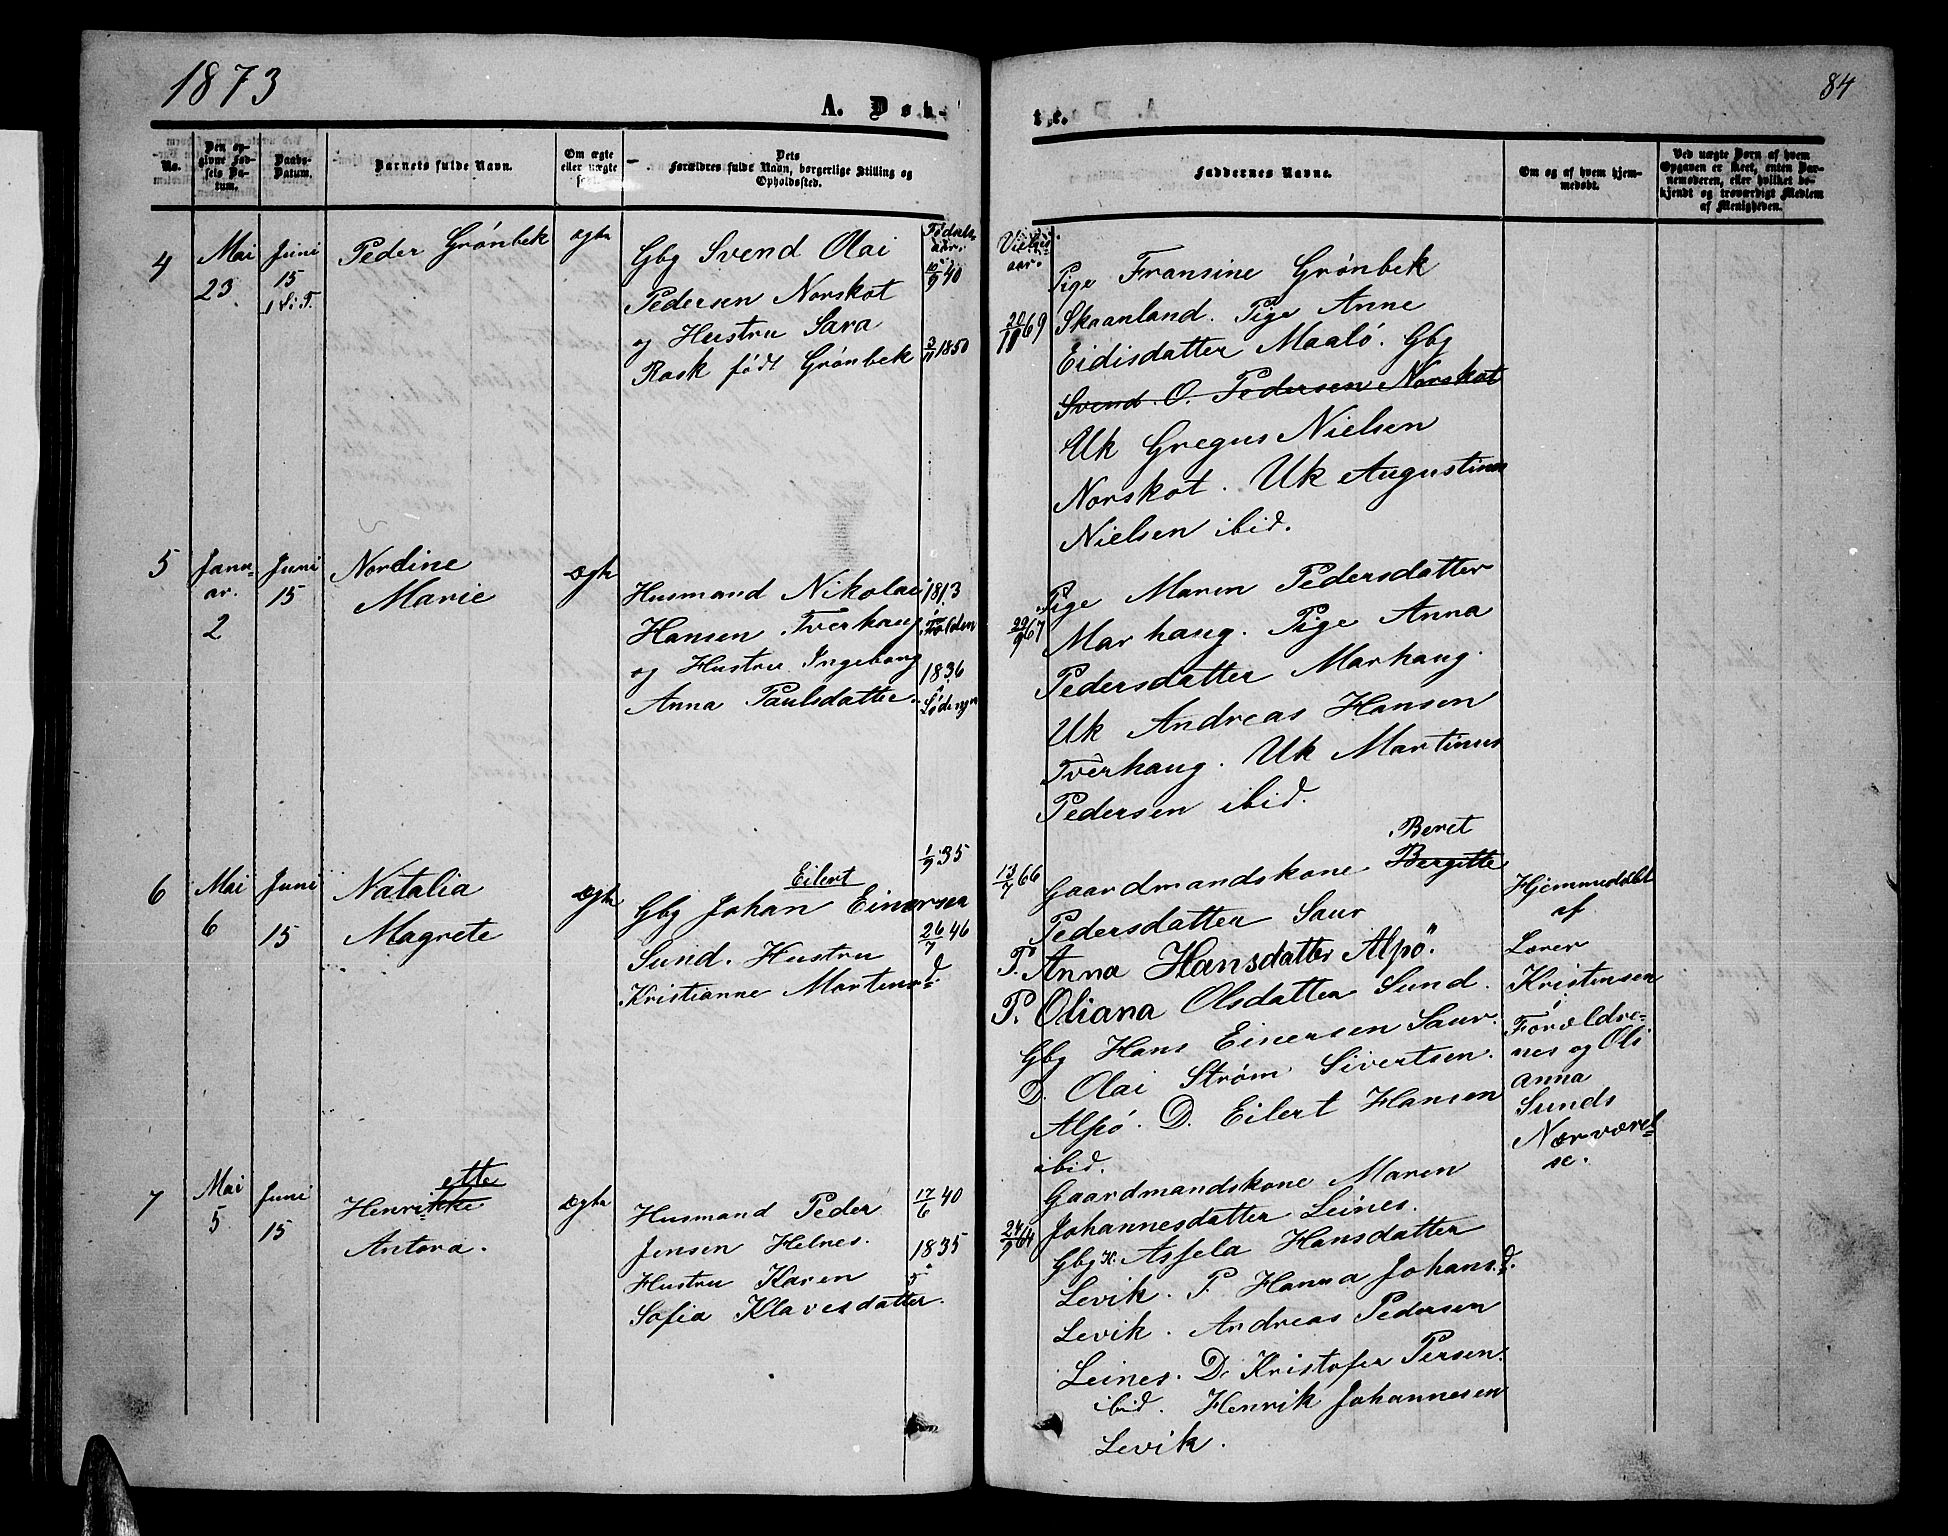 1873
84
A. Døb-
te.
No.
Den op-
givne Fød-
sels Da-
tum.
Daabs-
Datum.
Barnets fulde Navn.
Om ægte
eller uægte
født.
Dets
Forældres fulde Navn, borgerlige Stilling og
Opholdssted.
Faddernes Navne.
Om og af hvem hjem-
medøbt.
Ved uægte Børn af hvem
Opgaven er skeet, enten Bar-
nemoderen, eller hvilket be-
kjendt og troværdigt Medlem
af Menigheden.
4
Mai
23
Juni
15
1 S. i T.
Peder Grönbek
ægte
Gbg Svend Olai
Pedersen Norskot
og Hustru Sara
Rask født Grönbek
Fødsels-
aar.
10/9 40
3/11 1850
Vielses
aar.
20/10 69
Pige Fransine Grönbek
Skaanland. Pige Anne
Eidisdatter Maalö. Gbg
Svend O. Pedersen Norskot
Uk Gregus Nielsen
Norskot. Uk Augustinus
Nielsen ibid.
5
Janu-
ar.
2
Juni
15
Nordine
Marie
ægte
Husmand Nikolai
Hansen Tverhaug
og Hustru Ingeborg
Anna Paulsdatter.
1813
Folden
1836
Lødingen
29/9 67
Pige Maren Pedersdatter
Marhaug. Pige Anna
Pedersdatter Marhaug.
Uk Andreas Hansen
Tverhaug. Uk Martinus
Pedersen ibid.
6
Mai
6
Juni
15
Natalia
Magrete
ægte
Eilert
Gbg Johan Einersen
Sund. Hustru
Kristianne Martens d.
1/9 35
26/7 46
13/7 66
Beret
Gaardmandskone Bergitte
Pedersdatter Saur
P. Anna Hansdatter Alpö.
P. Oliana Olsdatter Sund.
Gbg Hans Einersen Saur.
D. Olai Ström Sivertsen.
Alpö. D. Eilert Hansen
ibid.
Hjemmedøbt
af
Lærer
Kristensen
i Forældre-
nes og Oli
anna
Sunds
Nærværel-
se.
7
Mai
5
Juni
15
ette
Henrikke
Antora.
ægte
Husmand Peder
Jensen Helnes.
Hustru Karen
Sofia Klavesdatter.
17/6 40
1835
24/9 64
Gaardmandskone Maren
Johannesdatter Leines.
Gbg K. Asfela Hansdatter
Levik. P. Hanna Johans. d.
Levik. Andreas Pedersen
Leines. D. Kristofer Persen.
ibid. Henrik Johannesen
Levik.